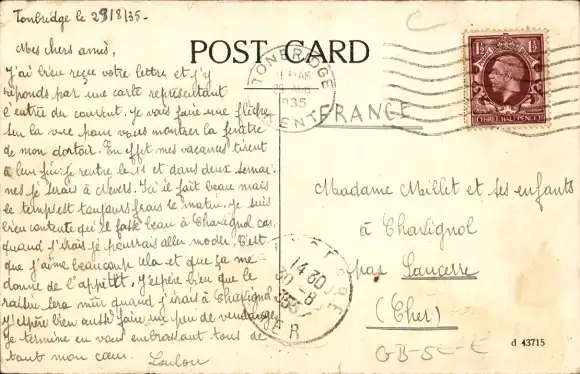 Tonbridge le 29/8/35-
Mes chers amis,
J'ai bien reçue votre lettre et j'y
réponds par une carte representant
l'entrée du couvent. Je vais faire une flèche
sur la vue pour vous montrer la fenêtre
de mon dortoir. En effet mes vacances tirent
à leur fin. Je rentre le 11 et dans deux semai-
nes je serais à Nevers. Ici il fait beau mais
le temps est toujours frais le matin. Je suis
bien contente qu'il fasse beau à Chavignol car,
quand j'irais je pourrais aller
que j'aime beaucoup cela et que ça me
donne de l'appétit. J'espère bien que le
raisin sera mûr quand j'irais à Chavignol
J'espère bien aussi faire un peu de vendange
Je termine en vous embrassant tous de
tout mon cœur. Loulou
POST CARD
TONBRIDGE
1935
KENT
THREE HALFPENCE
1½ 1½
FRANCE
Madame Millet et ses enfants
à Chavignol
par Sancerre
(Cher)
14 30
30 -8
35
CHER
d 43715
GB-5